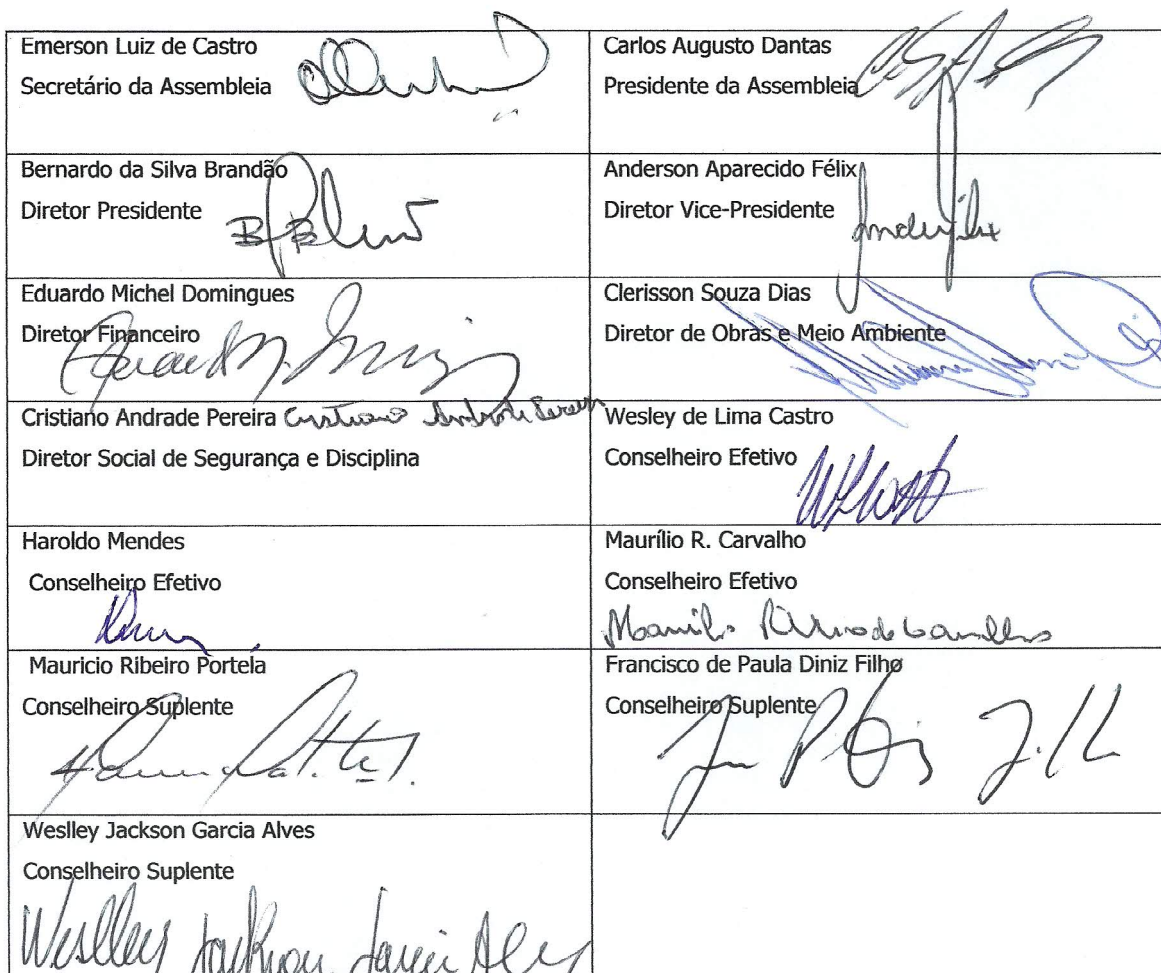 Emerson Luiz de Castro
Secretário da Assembleia
Carlos Augusto Dantas
Presidente da Assembleia
Bernardo da Silva Brandão
Diretor Presidente
Anderson Aparecido Félix
Diretor Vice-Presidente
Eduardo Michel Domingues
Diretor Financeiro
Clerisson Souza Dias
Diretor de Obras e Meio Ambiente
Cristiano Andrade Pereira Cristiano Andrade Pereira
Diretor Social de Segurança e Disciplina
Wesley de Lima Castro
Conselheiro Efetivo
Haroldo Mendes
Conselheiro Efetivo
Maurílio R. Carvalho
Conselheiro Efetivo
Maurilio Ribeiro de Carvalho
Mauricio Ribeiro Portela
Conselheiro Suplente
Francisco de Paula Diniz Filho
Conselheiro Suplente
Weslley Jackson Garcia Alves
Conselheiro Suplente
Weslley Jackson Garcia Alves